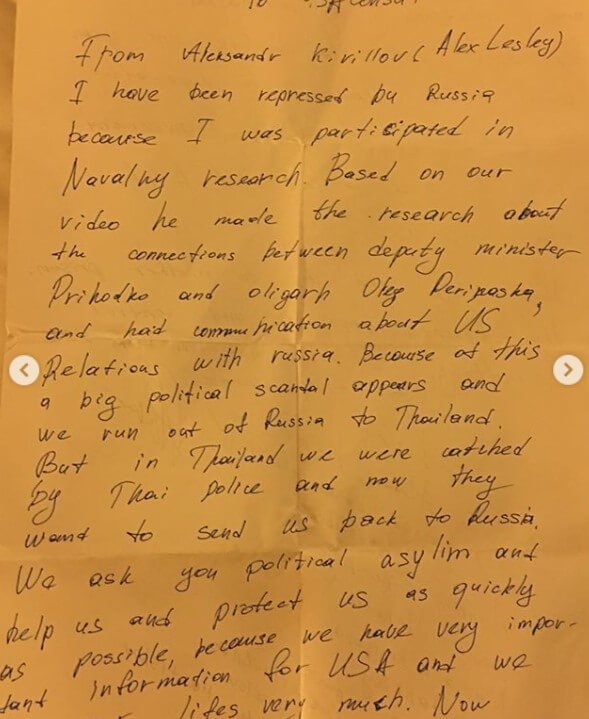 To
From Aleksandr Kirillov (Alex Lesley)
I have been repressed by Russia
because I was participated in
Navalny research. Based on our
video he made the research about
the connections between deputy minister
Prihodko and oligarh Oleg Deripaska,
and had communication about US
Relations with russia. Because of this
a big political scandal appears and
we run out of Russia to Thailand.
But in Thailand we were catched
by Thai police and now they
want to send us back to Russia.
We ask you political asylim and
help us and protect us as quickly
as possible, because we have very impor-
tant information for USA and we
lifes very much. Now